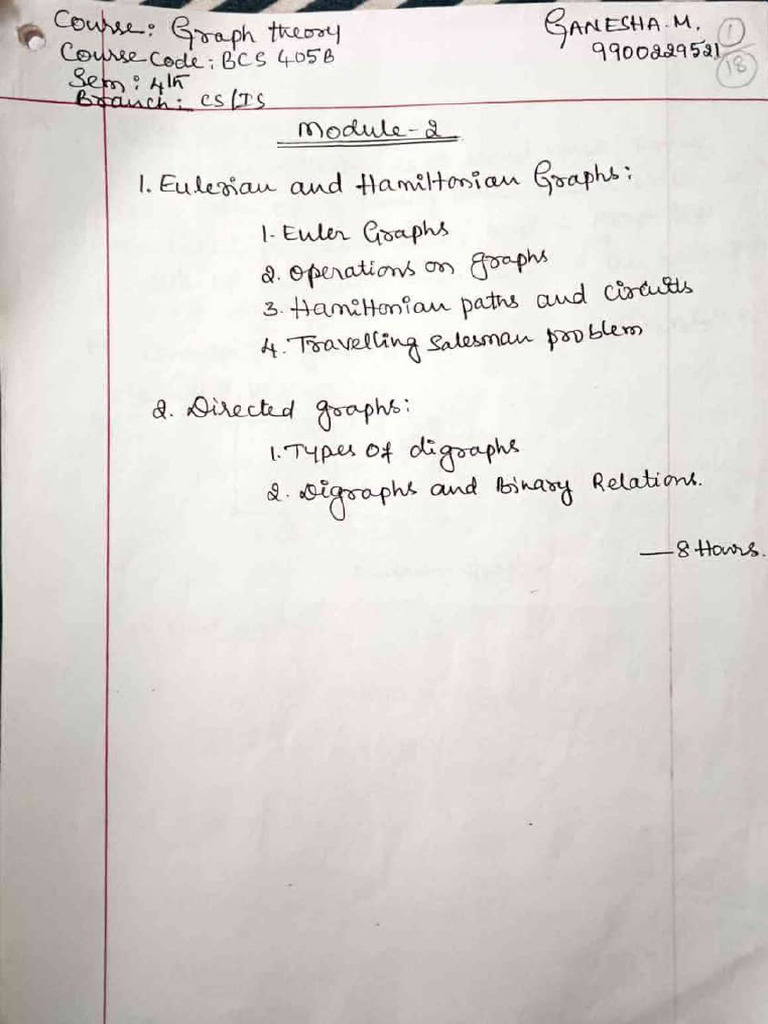 Course: Graph theory
GANESHA.M.
Course Code: BCS 405B
9900229521
1
18
Sem: 4th
Branch: CS/IS
Module-2
1. Eulerian and Hamiltonian Graphs:
1. Euler Graphs
2. Operations on graphs
3. Hamiltonian paths and circuits
4. Travelling Salesman problem
2. Directed graphs:
1. Types of digraphs
2. Digraphs and Binary Relations.
— 8 Hours.